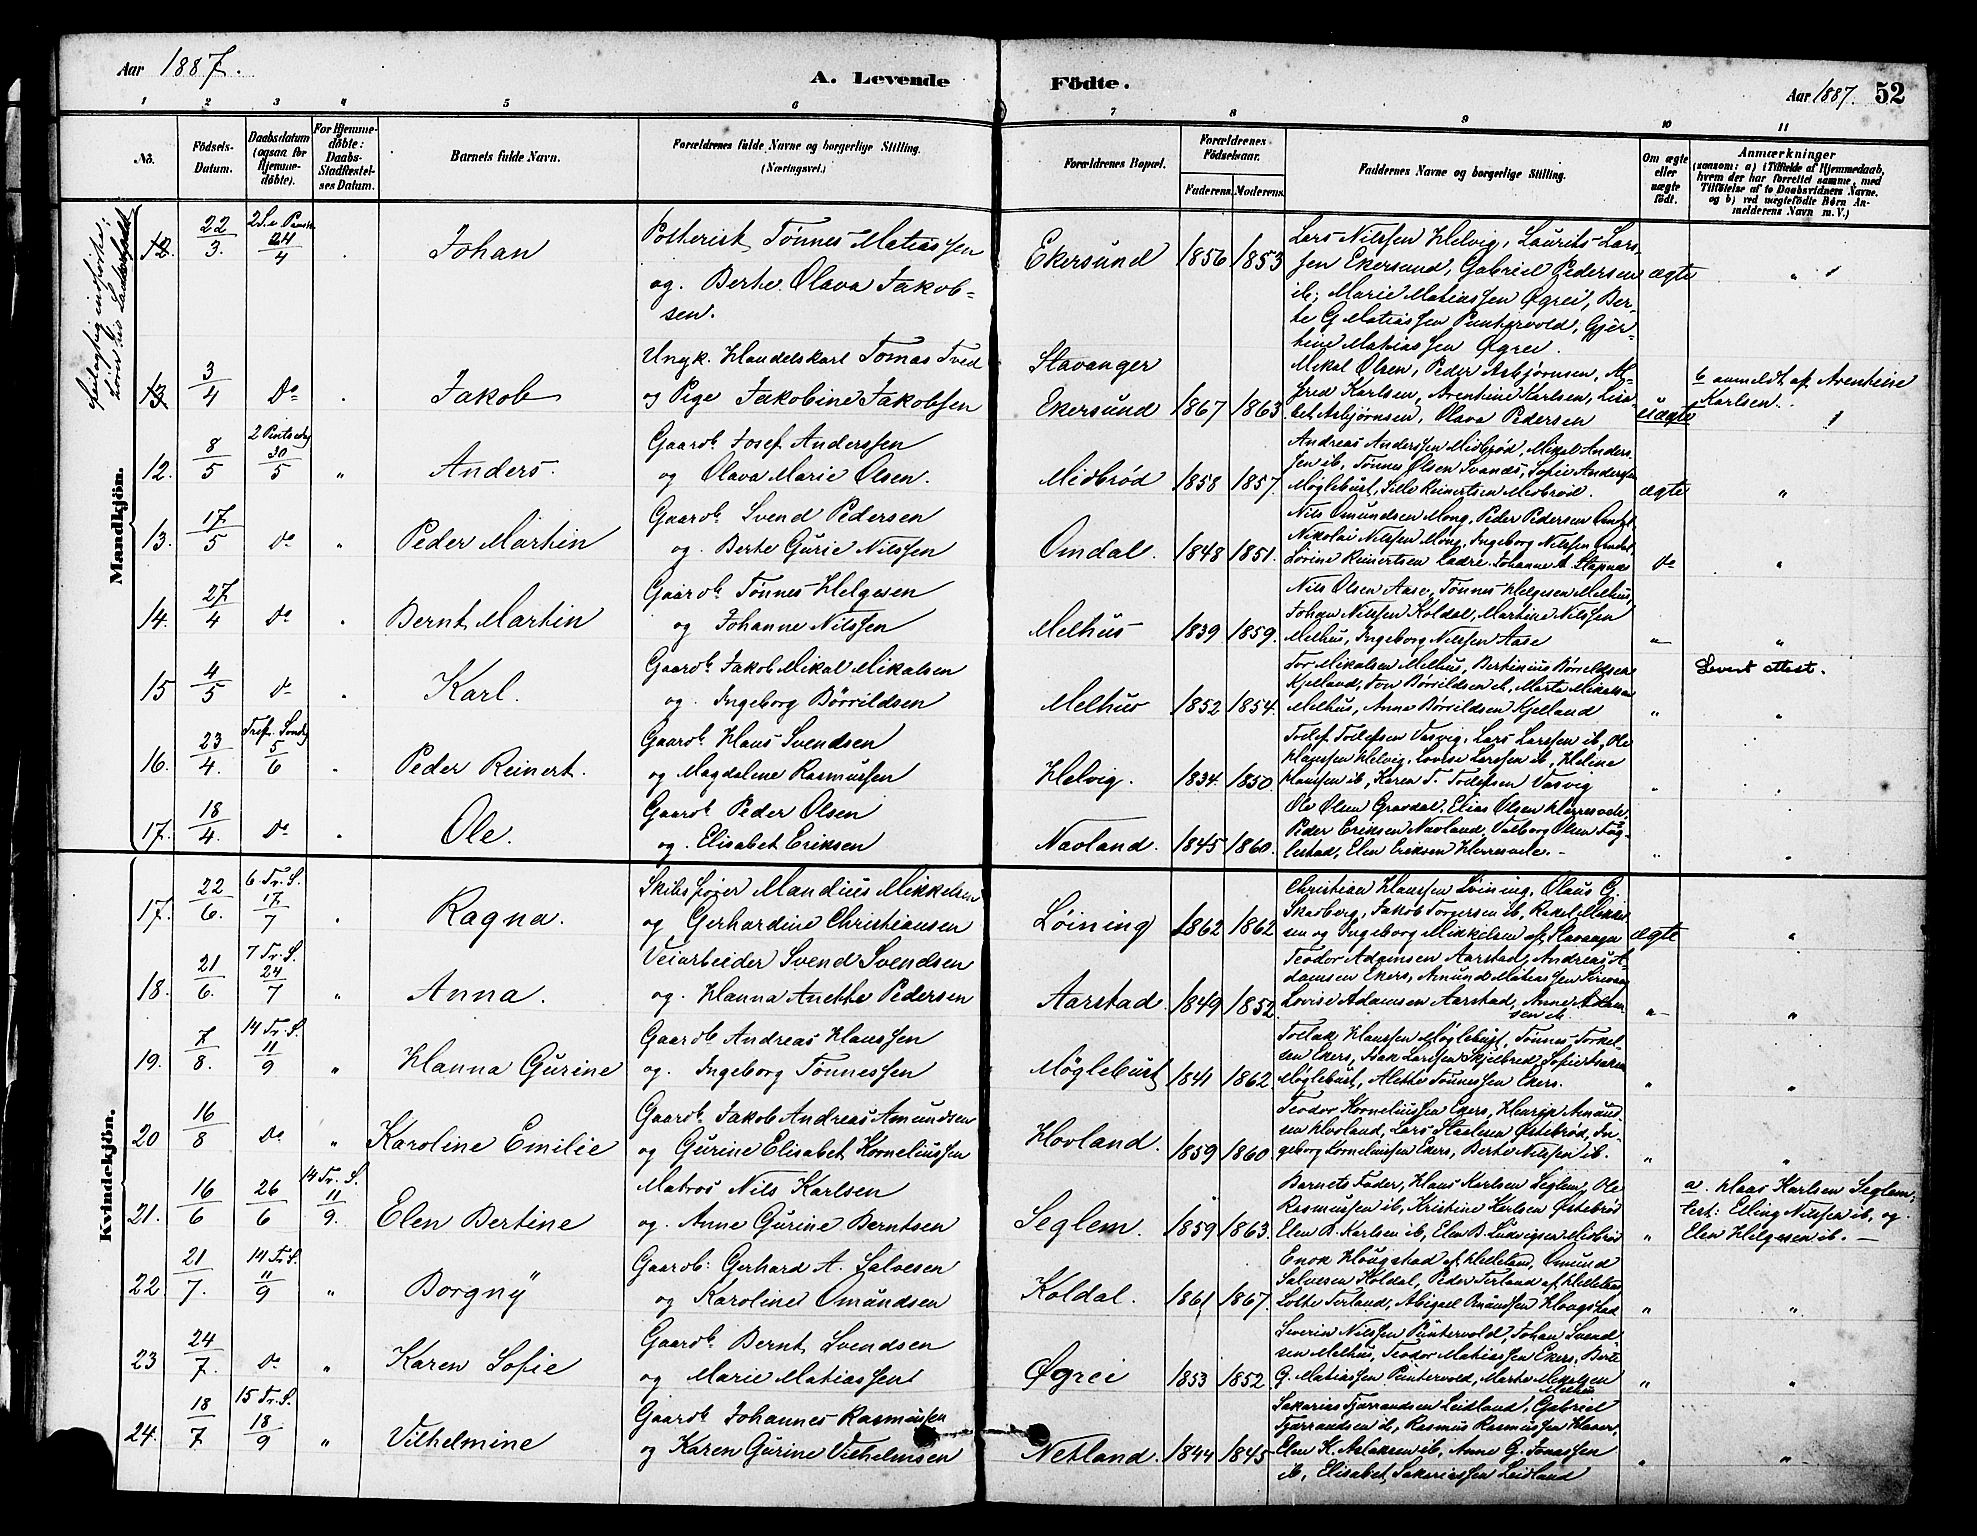 Aar 1887.
A. Levende Födte.
Aar 1887. 52
1 2 3 4 5 6 7 8 9 10 11
No.
Födsels-
Datum.
Daabsdatum
(ogsaa for
Hjemme-
döbte).
For Hjemme-
döbte:
Daabs-
Stadfæstel-
ses Datum.
Barnets fulde Navn.
Forældrenes fulde Navne og borgerlige Stilling.
(Næringsvei.)
Forældrenes Bopæl.
Forældrenes
Födselsaar.
Faderens. Moderens.
Faddernes Navne og borgerlige Stilling.
Om ægte
eller
uægte
födt.
Anmærkninger
(saasom: a) i Tilfælde af Hjemmedaab,
hvem der har forrettet samme, med
Tilföielse af to Daabsvidners Navne.
og b) ved uægtefödte Börn An-
melderens Navn m. V.)
Mandkjön.
12. 22/3. 24/4 Johan
Tønnes Matiassen
og. Berte Olava Jakob-
sen.
Ekersund 1856 1853
Lars Nilssen Helvig, Laurits Lars-
sen Ekersund, Gabriel Pedersen
ib, Marie Matiassen Øgrei, Ber-
te G Matiassen Puntervold, Gjer-
tine Matiassen Øgrei.
ægte "
13 3/4 Do Jakob
Ungk. Handelskarl Tomas Tved
og Pige Jakobine Jakobsen
Stavanger
Ekersund 1867 1863.
Mikal Olsen, Peder Asbjørnsen, Al-
fred Karlsen, Arentine Karlsen, Lisa-
bet Asbjørnsen, Olava Pedersen
uægte
b anmeldt af Arentine
Karlsen.
12. 8/5 2 Pintsedag 30/5 " Anders.
Gaardb. Josef Anderssen
og Olava Marie Olsen.
Midbrød 1858 1857.
Andreas Anderssen Midbrød, Mikal Anders-
sen ib, Tønnes Olsen Svanæs, Sofie Anderssen
Møglebust, Sille Reinertsen Midbrød.
ægte "
13. 17/5 Do " Peder Martin
Gaardb. Svend Pedersen
og. Berte Gurie Nilssen
Omdal. 1848 1851.
Nils Omundsen Mong, Peder Pedersen Omdal
Nikolai Nilssen Mong, Ingeborg Nilssen Omdal
Lørine Reinertsen Ladre, Johanne A. Stapnæs
Do "
14. 27/4 Do " Bernt Martin
Gaardb. Tønnes Helgesen
og Johanne Nilssen
Melhus 1839 1859.
Nils Olsen Aase, Tønnes Helgesen Melhus,
Johan Nilssen Koldal, Martine Nilssen
Melhus, Ingeborg Nilssen Aase
" "
15 4/5 Do Karl.
Gaardb. Jakob Mikal Mikalsen
og. Ingeborg Børrildsen
Melhus 1852 1854.
Tor Mikalsen Melhus, Bertinius Børrildsen
Kjelland, Ton Børrildsen ib, Marta Mikalsen
Melhus, Anne Børrildsen Kjelland
" Levert Attest.
16. 23/4. Tref. Sondag 5/6 Peder Reinert.
Gaardb. Hans Svendsen
og Magdalene Rasmussen
Helvig. 1834. 1850
Todlef Todlefsen Vasvig, Lars Larssen ib, Ole
Hanssen Helvig, Lovise Larssen ib, Helina
Hanssen ib, Karen T. Todlefsen Vasvig
17. 18/4. Do " Ole.
Gaardb. Peder Olsen
og. Elisabet Eriksen
Navland. 1845 1860.
Ole Olsen Gravdal, Elias Olsen Harrevele,
Peder Eriksen Navland, Valborg Olsen Fug-
lestad, Elen Eriksen Harrevele.
Kvindekjön.
17. 22/6. 6 Tr. S. 17/7 Ragna.
Skibsfører Mandius Mikkelsen
og Gerhardine Christiansen
Løining 1862 1862
Christian Hanssen Løining, Olaus G.
Skarberg, Jakob Torgersen ib, Rakel Mikkel-
sen og Ingeborg Mikkelsen af Stavanger
ægte "
18. 21/6. 7 Tr. S. 24/7 " Anna.
Veiarbeider Svend Svendsen
og. Hanna Anette Pedersen
Aarstad. 1849 1852
Teodor Adamsen Aarstad, Andreas A-
damsen Ekers, Amund Matiassen Sirevaag
Lovise Adamsen Aarstad, Anne Adam-
sen ib.
" "
19. 7/8. 14 Tr. S. 11/9 " Hanna Gurine
Gaardb. Andreas Hanssen
og. Ingeborg Tønnessen
Møglebust 1841 1862.
Tollak Hanssen Møglebust, Tønnes Torkel-
sen Ekers, Isak Larssen Skjelbred, Sofie Isaksen
Møglebust, Alette Tønnessen Ekers.
" "
20 16/8 Do " Karoline Emilie
Gaardb. Jakob Andreas Amundsen
og Gurine Elisabet Korneliussen
Hovland. 1859 1860.
Teodor Korneliussen Ekers, Henrik Amund-
sen Hovland, Lars Staalesen Østebrød, In-
geborg Korneliussen Ekers, Berte Nilssen ib.
" "
21. 16/6 26/6 14 Tr. S. 11/9. Elen Bertine
Matros Nils Karlsen
og. Anne Gurine Berntsen
Seglem. 1859 1863.
Barnets Fader, Hans Karlsen Seglem, Ole
Rasmussen ib, Kristine Karlsen Østebrød
Elen B. Karlsen ib, Elen B. Ludvigsen Midbrød
"
a. Klaas Karlsen Seglem,
test: Elling Nilssen ib, og
Elen Helgesen ib. —
22 21/7. 14 Tr. S. 11/9 " Borgny
Gaardb. Gerhard A. Salvesen
og Karoline Omundsen
Koldal. 1861 1867.
Enok Hougstad af Helleland, Omund
Salvesen Koldal, Peder Terland af Helleland
Lotte Terland, Abigael Omundsen Hougstad
" "
23 24/7. Do " Karen Sofie
Gaardb. Bernt Svendsen
og Marie Matiassen
Øgrei 1853 1852
Severin Nilssen Puntervold, Johan Svend-
sen Melhus, Teodor Matiassen Ekers, Berte
G. Matiassen Puntervold, Marte Mikalsen
Melhus
" "
24. 18/7. 15 Tr. S. 18/9 " Vilhelmine
Gaardb. Johannes Rasmussen
og Karen Gurine Vilhelmsen
Netland. 1844 1845
Sakarias Tjørrandsen Leidland, Gabriel
Tjørrandsen ib, Rasmus Rasmussen
Elen K. Aslaksen ib, Anne G. Jonassen
ib, Elisabet Sakariassen Leidland
" "